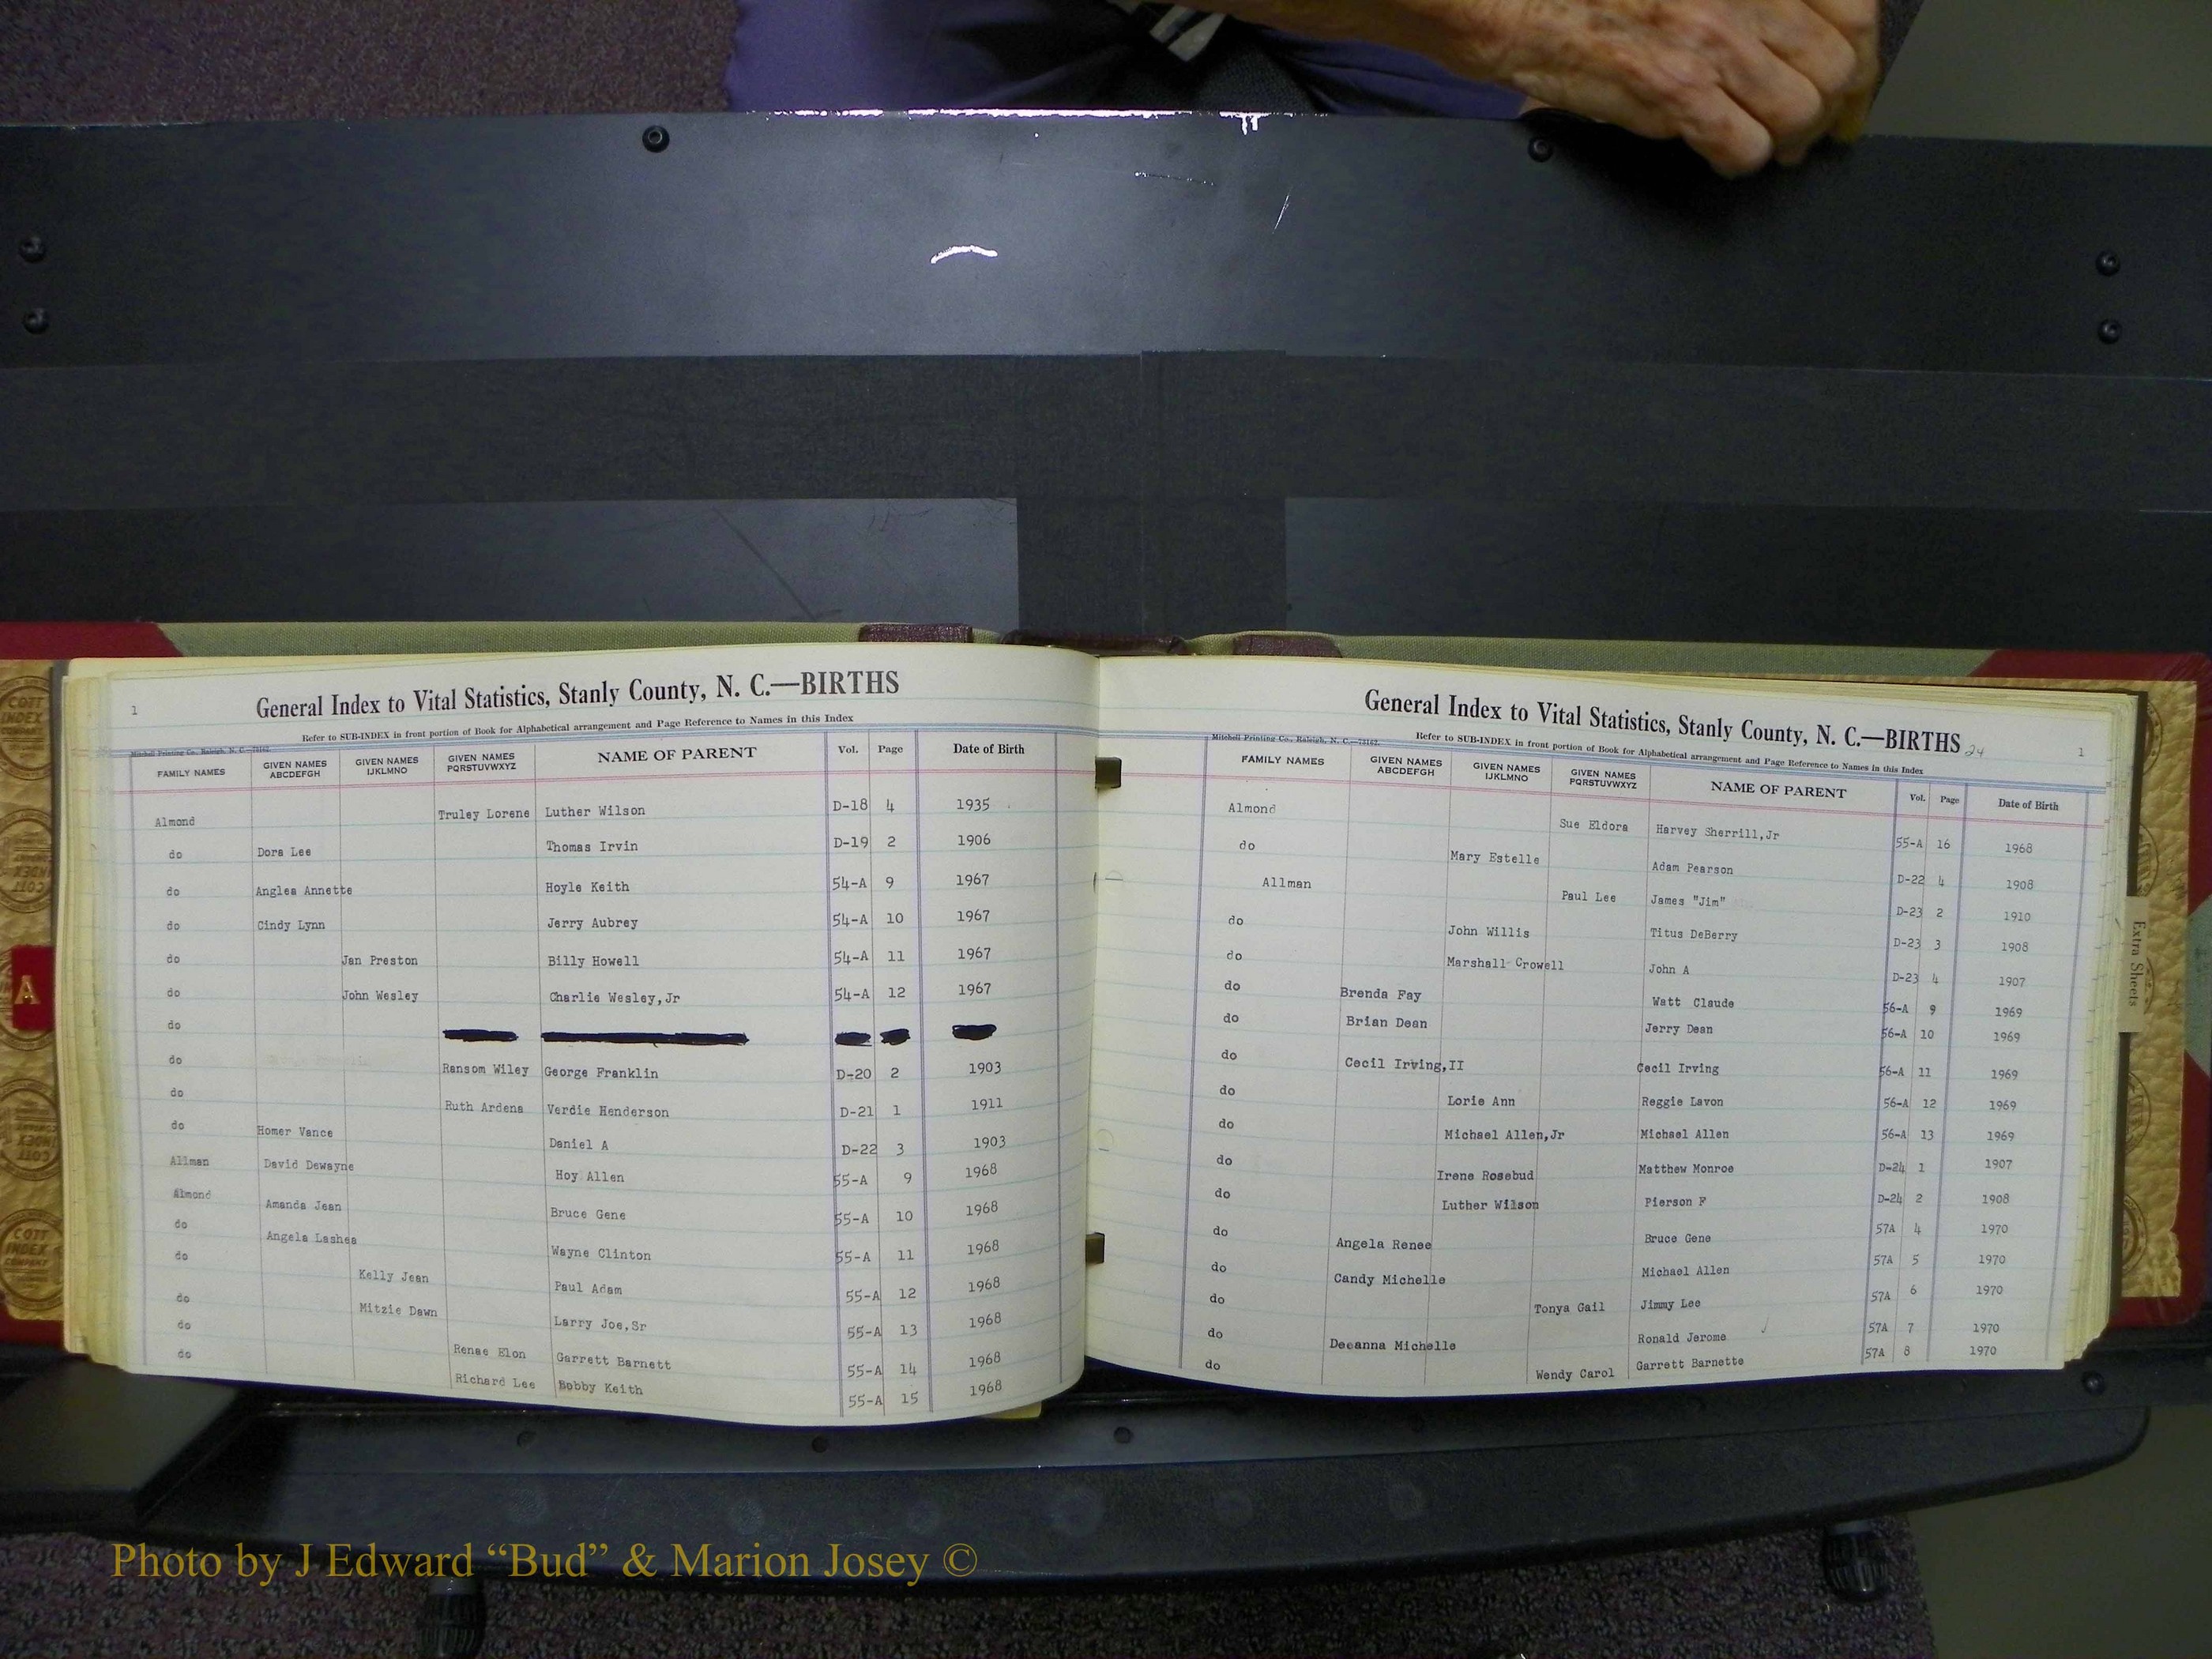 1
General Index to Vital Statistics, Stanly County, N. C.—BIRTHS
Refer to SUB-INDEX in front portion of Book for Alphabetical arrangement and Page Reference to Names in this Index
Mitchell Printing Co., Raleigh, N. C.—73162.
FAMILY NAMES GIVEN NAMES ABCDEFGH GIVEN NAMES IJKLMNO GIVEN NAMES PQRSTUVWXYZ NAME OF PARENT Vol. Page Date of Birth
Almond Truley Lorene Luther Wilson D-18 4 1935
do Dora Lee Thomas Irvin D-19 2 1906
do Anglea Annette Hoyle Keith 54-A 9 1967
do Cindy Lynn Jerry Aubrey 54-A 10 1967
do Jan Preston Billy Howell 54-A 11 1967
do John Wesley Charlie Wesley,Jr 54-A 12 1967
do
do Ransom Wiley George Franklin D-20 2 1903
do Ruth Ardena Verdie Henderson D-21 1 1911
do Homer Vance Daniel A D-22 3 1903
Allman David Dewayne Hoy Allen 55-A 9 1968
Almond Amanda Jean Bruce Gene 55-A 10 1968
do Angela Lashea Wayne Clinton 55-A 11 1968
do Kelly Jean Paul Adam 55-A 12 1968
do Mitzie Dawn Larry Joe,Sr 55-A 13 1968
do Renae Elon Garrett Barnett 55-A 14 1968
do Richard Lee Bobby Keith 55-A 15 1968
General Index to Vital Statistics, Stanly County, N. C.—BIRTHS 24
1
Refer to SUB-INDEX in front portion of Book for Alphabetical arrangement and Page Reference to Names in this Index
Mitchell Printing Co., Raleigh, N. C.—73162.
FAMILY NAMES GIVEN NAMES ABCDEFGH GIVEN NAMES IJKLMNO GIVEN NAMES PQRSTUVWXYZ NAME OF PARENT Vol. Page Date of Birth
Almond Sue Eldora Harvey Sherrill,Jr 55-A 16 1968
do Mary Estelle Adam Pearson D-22 4 1908
Allman Paul Lee James "Jim" D-23 2 1910
do John Willis Titus DeBerry D-23 3 1908
do Marshall Crowell John A D-23 4 1907
do Brenda Fay Watt Claude 56-A 9 1969
do Brian Dean Jerry Dean 56-A 10 1969
do Cecil Irving,II Cecil Irving 56-A 11 1969
do Lorie Ann Reggie Lavon 56-A 12 1969
do Michael Allen,Jr Michael Allen 56-A 13 1969
do Irene Rosebud Matthew Monroe D-24 1 1907
do Luther Wilson Pierson F D-24 2 1908
do Angela Renee Bruce Gene 57A 4 1970
do Candy Michelle Michael Allen 57A 5 1970
do Tonya Gail Jimmy Lee 57A 6 1970
do Deeanna Michelle Ronald Jerome 57A 7 1970
do Wendy Carol Garrett Barnette 57A 8 1970
A
Extra Sheets
COTT INDEX COMPANY
Photo by J Edward “Bud” & Marion Josey ©